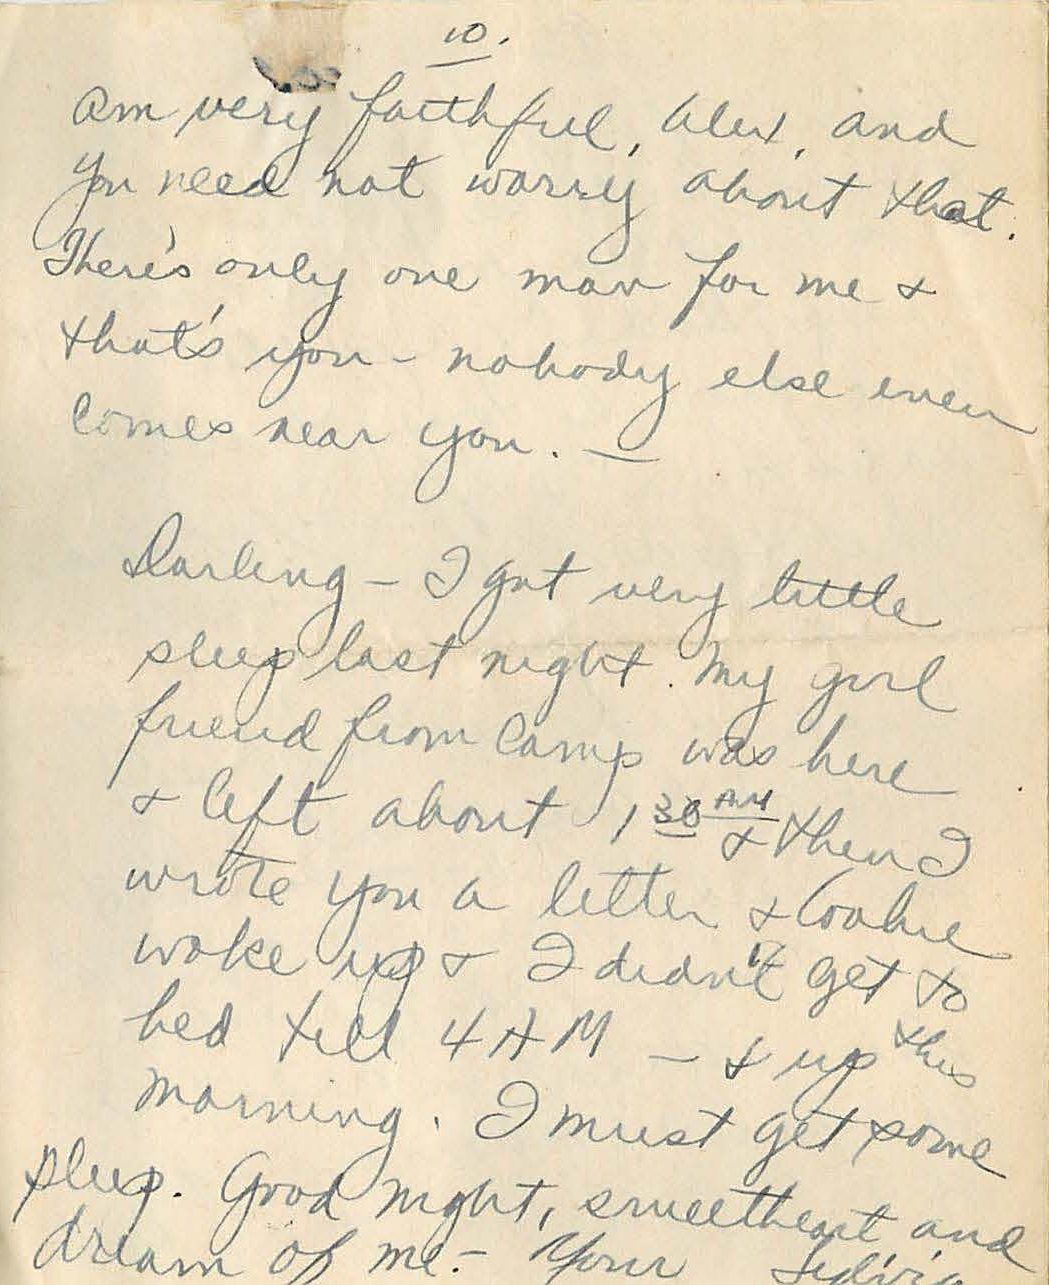 10.
am very faithful, Alex, and
you need not worry about that.
There's only one man for me &
that's you - nobody else even
comes near you. —
Darling - I got very little
sleep last night. My girl
friend from Camp was here
& left about 1 30 AM & then I
wrote you a letter & Cookie
woke up & I didn't get to
bed till 4 AM - & up this
morning. I must get some
sleep. Good night, sweetheart and
dream of me. - Your